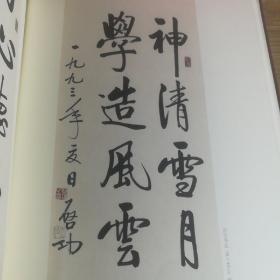 神清雪月
學造風雲
一九九三年夏日啓功